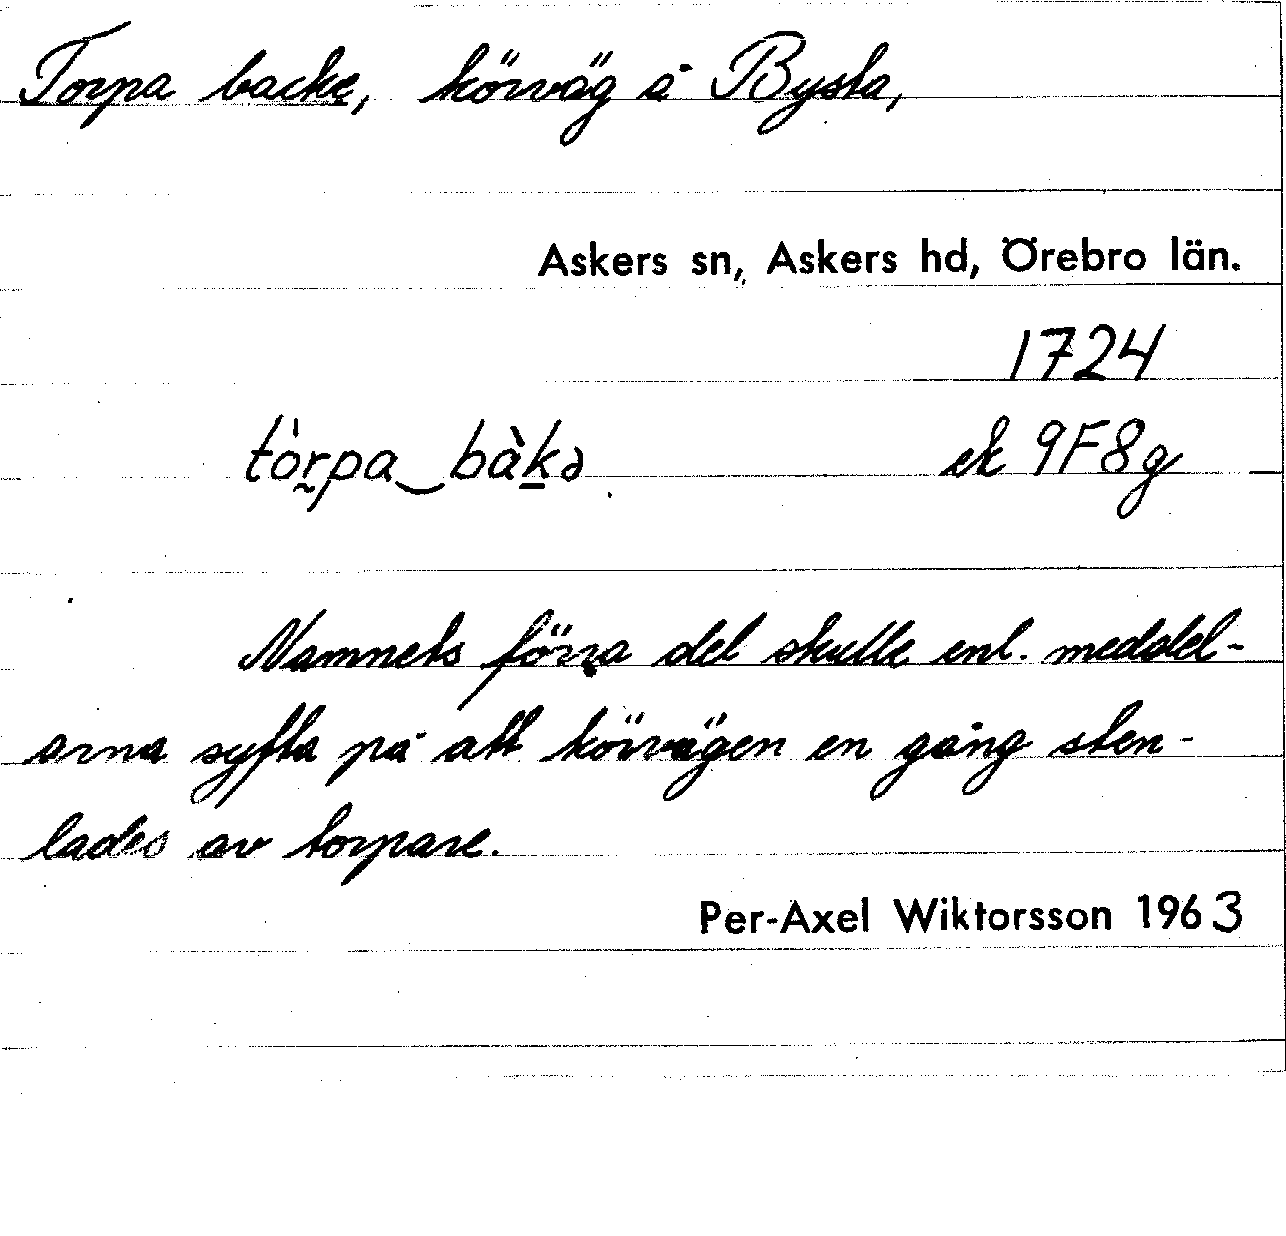 Torpa backe, körväg å Bysta,
Askers sn, Askers hd, Örebro län.
1724
tòrpa‿bàkə ek 9F8g
Namnets förra del skulle enl. meddel-
arna syfta på att körvägen en gång sten-
lades av torpare.
Per-Axel Wiktorsson 1963